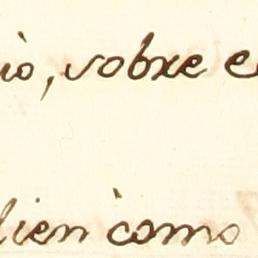 iò, sobre e
lien como